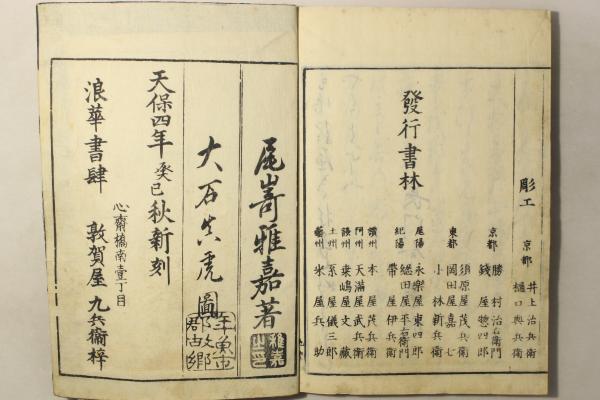 彫工
京都 井上治兵衛
樋口與兵衛
發行書林
京都 勝村治右衛門
錢屋惣四郎
東都 須原屋茂兵衛
岡田屋嘉七
小林新兵衛
尾陽 永樂屋東四郎
紀陽 綛田屋平右衛門
帶屋伊兵衛
讃州 本屋茂兵衛
阿州 天滿屋武兵衛
讃州 桒嶋屋文藏
土州 糸屋儀三郎
藝州 米屋兵助
尾嵜雅嘉著
雅嘉之印
大石真虎圖
天保四年癸巳秋新刻
心齋橋南壹丁目
浪華書肆 敦賀屋九兵衞梓